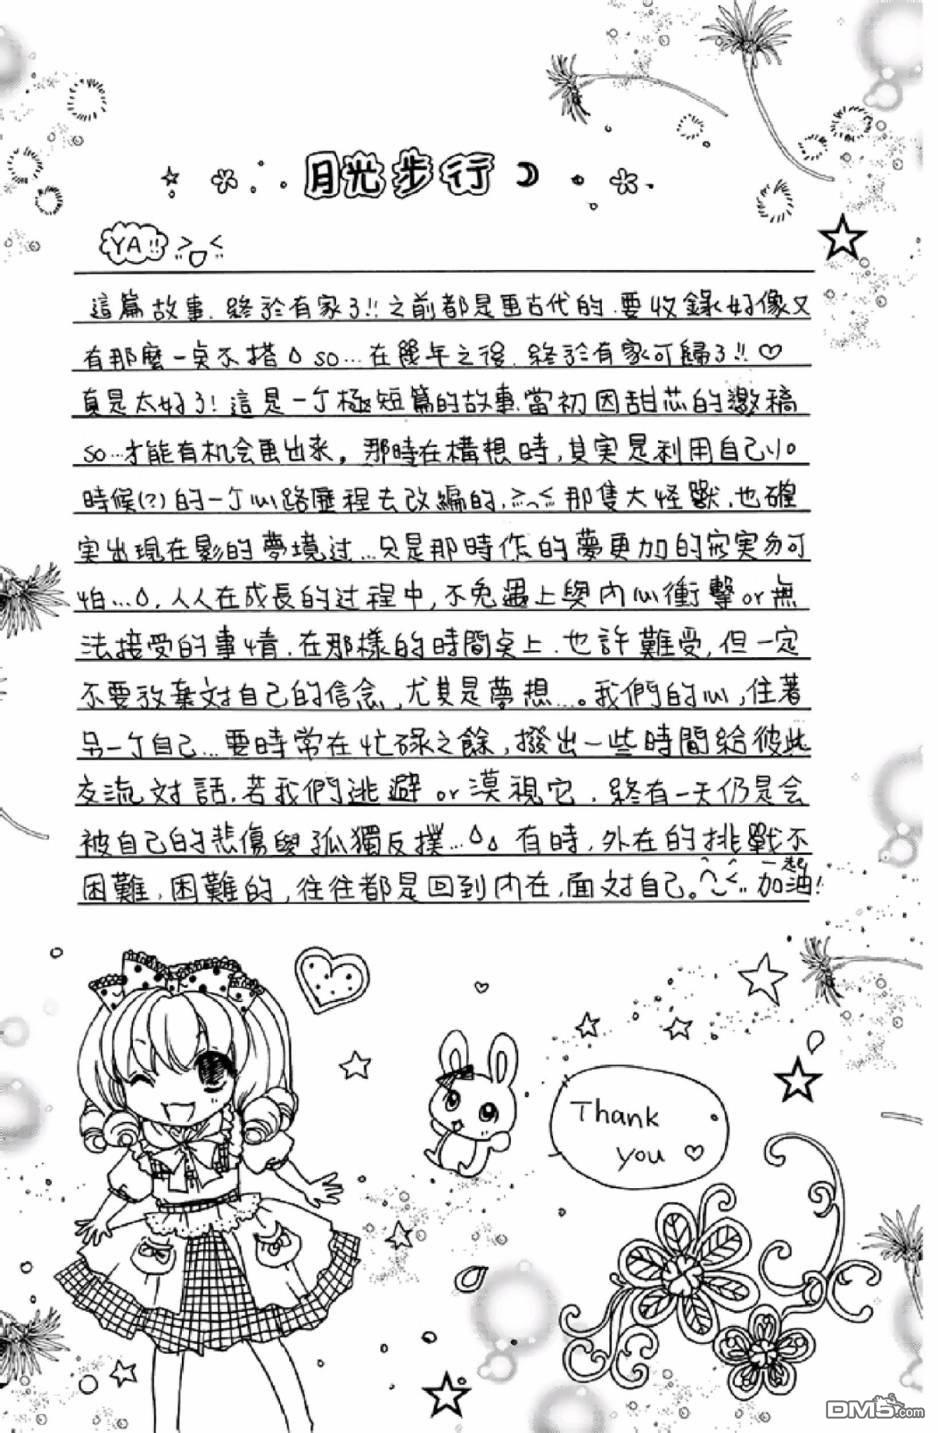 月光步行
YA!!
這篇故事.終於有家了!!之前都是画古代的.要收錄好像又
有那麼一点不搭 so…在幾年之後.終於有家可歸了!!♡
真是太好了!這是一个極短篇的故事.當初因甜芯的邀稿
so…才能有机会画出來。那時在構想時,其實是利用自己小
時候(?)的一个心路歷程去改編的,>"<那隻大怪獸,也確
實出現在影的夢境过…只是那時作的夢更加的寫實勿可
怕….人人在成長的过程中,不免遇上與內心衝擊or無
法接受的事情.在那樣的時間点上.也許難受,但一定
不要放棄对自己的信念,尤其是夢想…。我們的心,住著
另一个自己…要時常在忙碌之餘,撥出一些時間給彼此
交流对話.若我們逃避or漠視它.終有一天仍是会
被自己的悲傷與孤獨反撲… 有時,外在的挑戰不
困難.困難的,往往都是回到內在,面对自己。^_<..一起加油!
Thank
you ♡
DM5.com